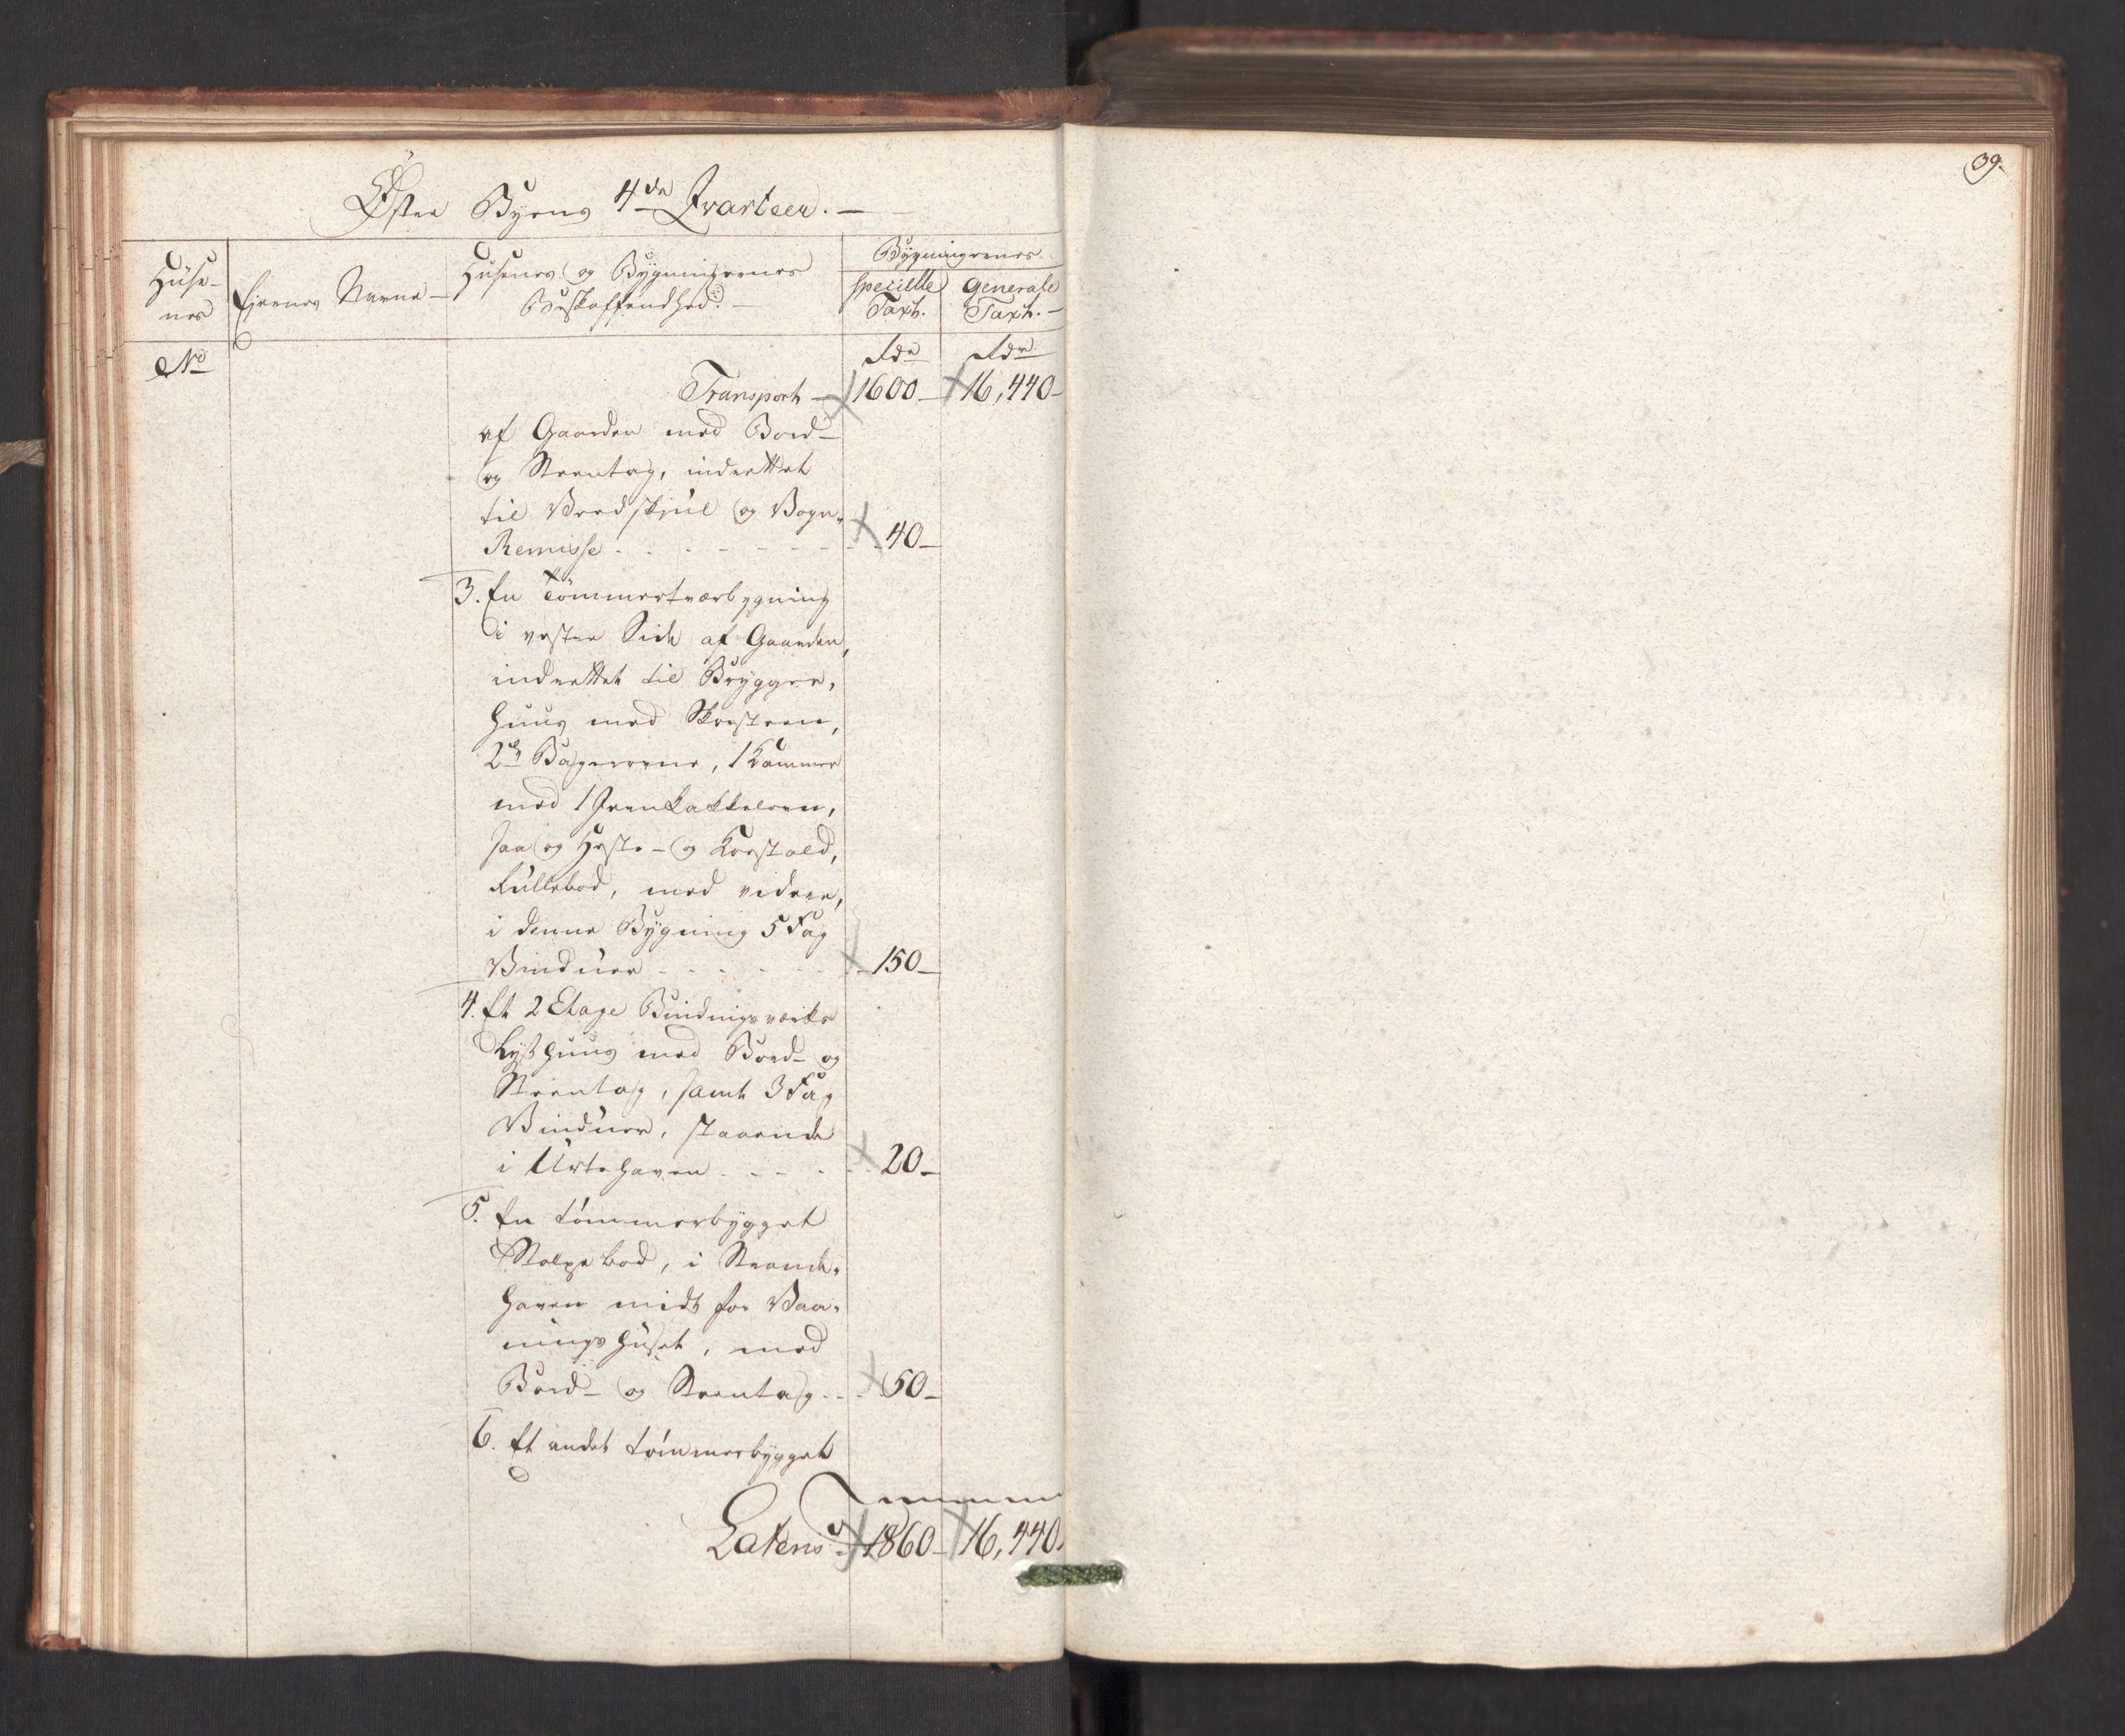 39.
Øster Byens 4de Qvarteer.
Huse-
nes
Ejernes Navne
Husenes og Bygningernes
Beskaffendhed.
Bygningernes
specielle
Taxt.
Generale
Taxt.
No
Rdr
Rdr
Transport 1600 16,440
af Gaarden med Bord-
og Steentag, indrettet
til Vedskiul og Vogn-
Remisse 40
3. En Tømmertværbygning
i vester Side af Gaarden,
indrettet til Brygger-
huus med Skorsteen,
2de Bagerovne, 1 Kammer
med 1 Jernkakkelovn,
saa og Heste- og Koestald,
Rullebod, med videre,
i denne Bygning 5 Fag
Vinduer 150
4. Et 2 Etage Bindingsværks
Lysthuus med Bord- og
Steentag, samt 3 Fag
Vinduer, staaende
i Urtehaven 20
5. En tømmerbygget
Stolpebod, i Strande-
haven midt for Vaa-
ningshuset, med
Bord- og Steentag 50
6. Et andet tømmerbygget
Latens 1860 16,440